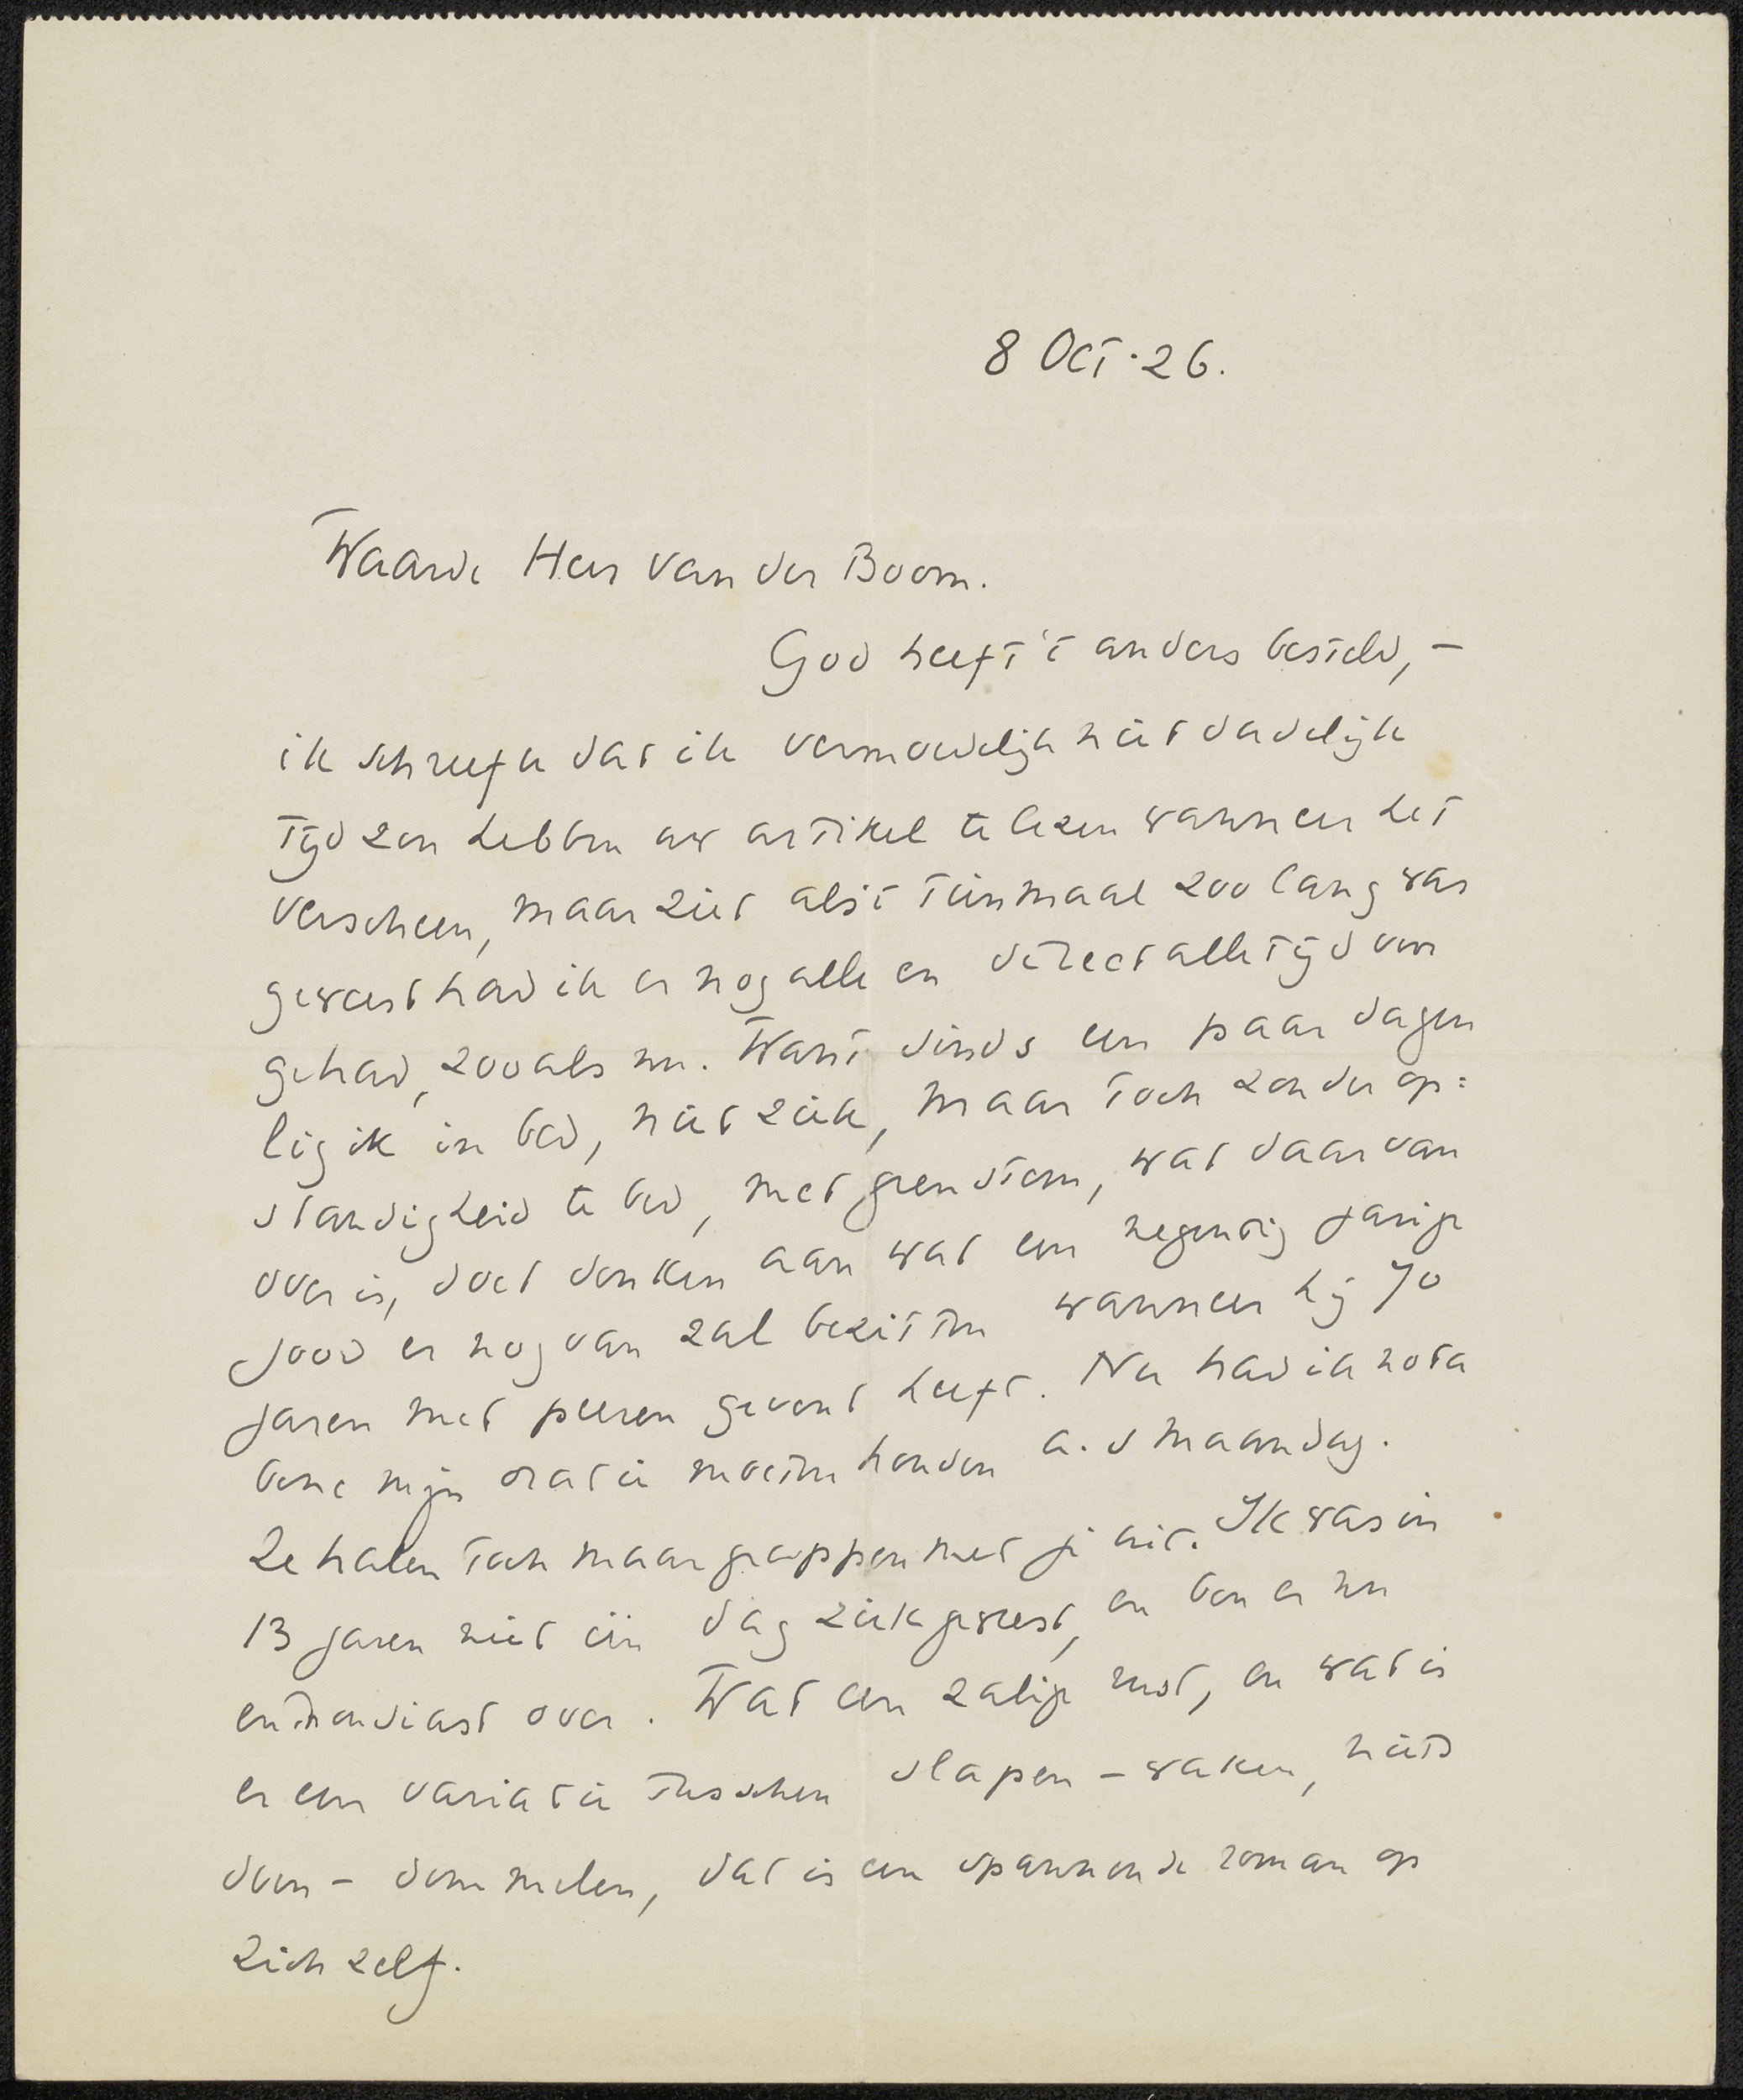 8 Oct. 26.
Waarde Heer van der Boom.
God heeft 't anders besteld, –
ik schreef u dat ik vermoedelijk niet dadelijk
tijd zou hebben uw artikel te lezen wanneer het
verscheen, maar ziet als 't tienmaal zoo lang was
geweest had ik er nog alle en direct alle tijd voor
gehad, zooals nu. Want sinds een paar dagen
lig ik in bed, niet ziek, maar toch zonder op=
standigheid te bed, met geen stem, wat daarvan
over is, doet denken aan wat een negentig jarige
Jood er nog van zal bezitten wanneer hij 70
jaren met peeren gevent heeft. Nu had ik nota
bene mijn oratie moeten houden a.s Maandag.
Ze halen toch maar grappen met je uit. Ik was in
13 jaren niet één dag ziek geweest, en ben er nu
enthousiast over. Wat een zalige rust, en wat is
er een variatie tusschen slapen – waken, niets
doen – dommelen, dat is een spannende roman op
zich zelf.